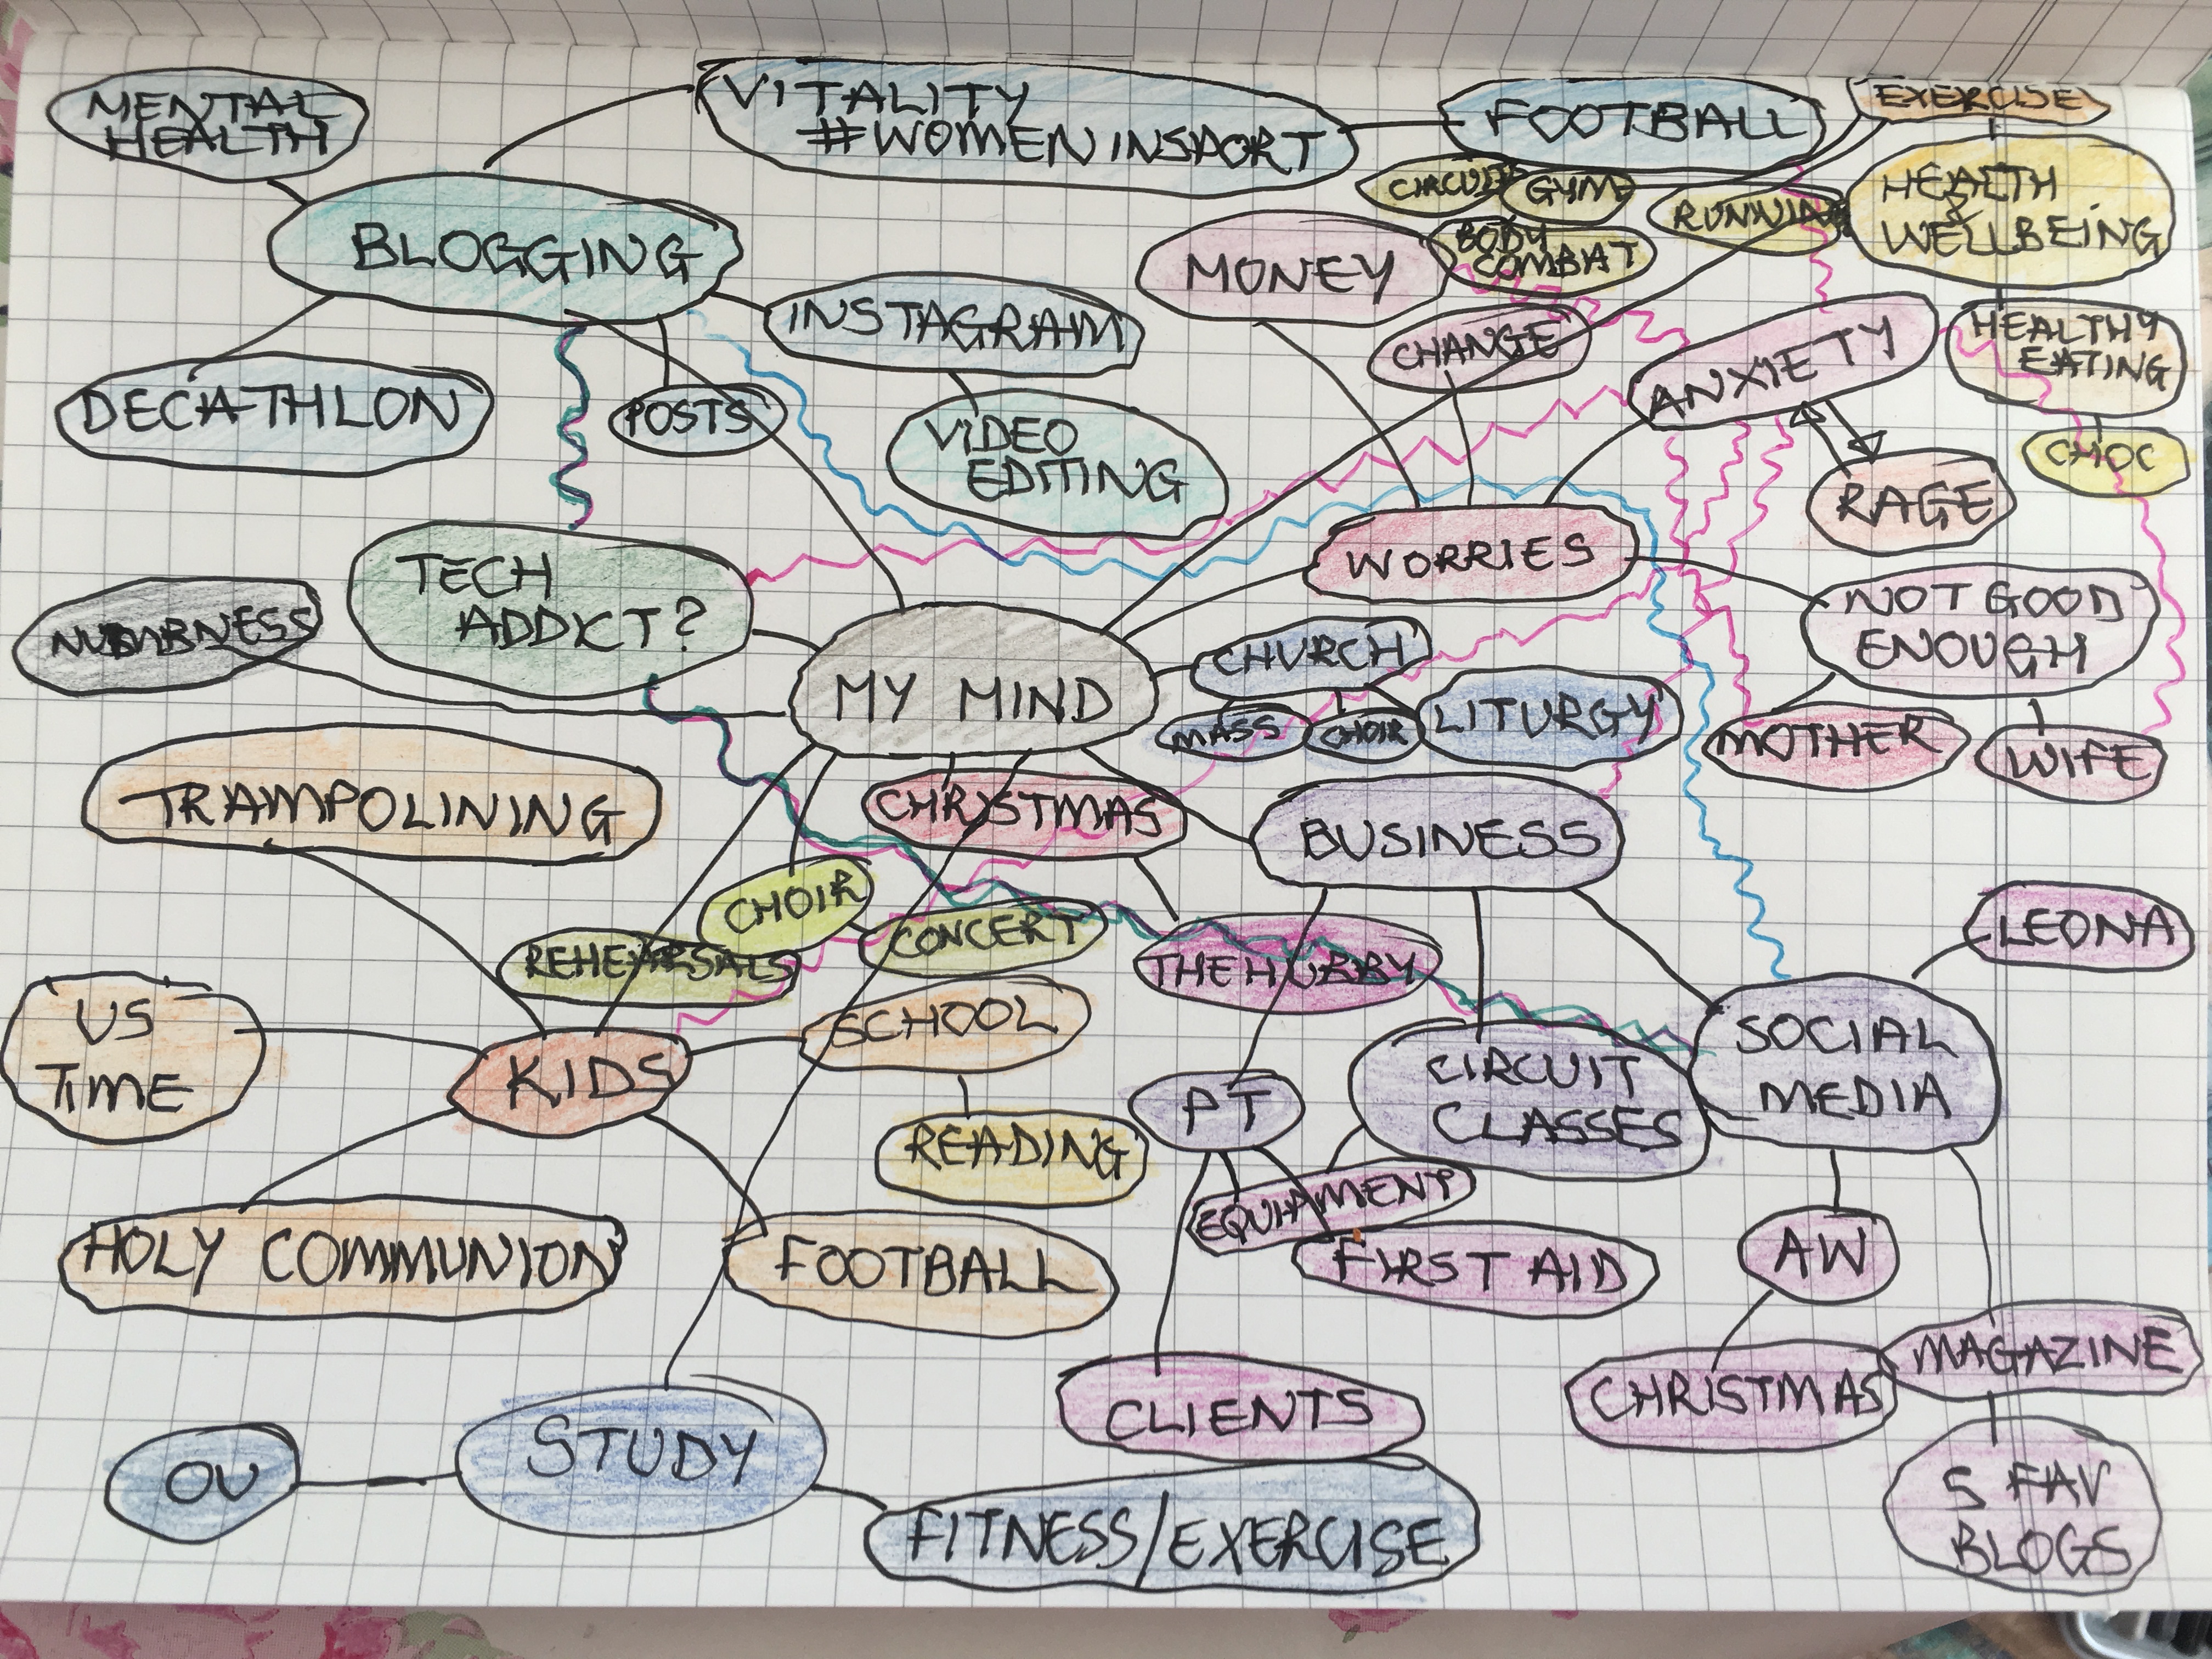 MENTAL
HEALTH
VITALITY
#WOMENINSPORT
FOOTBALL
EXERCISE
CIRCUIT
GYM
RUNNING
HEALTH
&
WELLBEING
BLOGGING
MONEY
BODY
COMBAT
INSTAGRAM
CHANGE
ANXIETY
HEALTHY
EATING
DECATHLON
POSTS
VIDEO
EDITING
CHOC
RAGE
TECH
ADDICT?
WORRIES
NUMBNESS
NOT GOOD
ENOUGH
MY MIND
CHURCH
MASS
CHOIR
LITURGY
MOTHER
WIFE
TRAMPOLINING
CHRISTMAS
BUSINESS
CHOIR
CONCERT
REHEARSALS
THE HURRY
LEONA
US
TIME
SCHOOL
KIDS
SOCIAL
MEDIA
PT
CIRCUIT
CLASSES
READING
EQUIPMENT
HOLY COMMUNION
FOOTBALL
FIRST AID
AW
MAGAZINE
CLIENTS
CHRISTMAS
OU
STUDY
5 FAV
BLOGS
FITNESS/EXERCISE